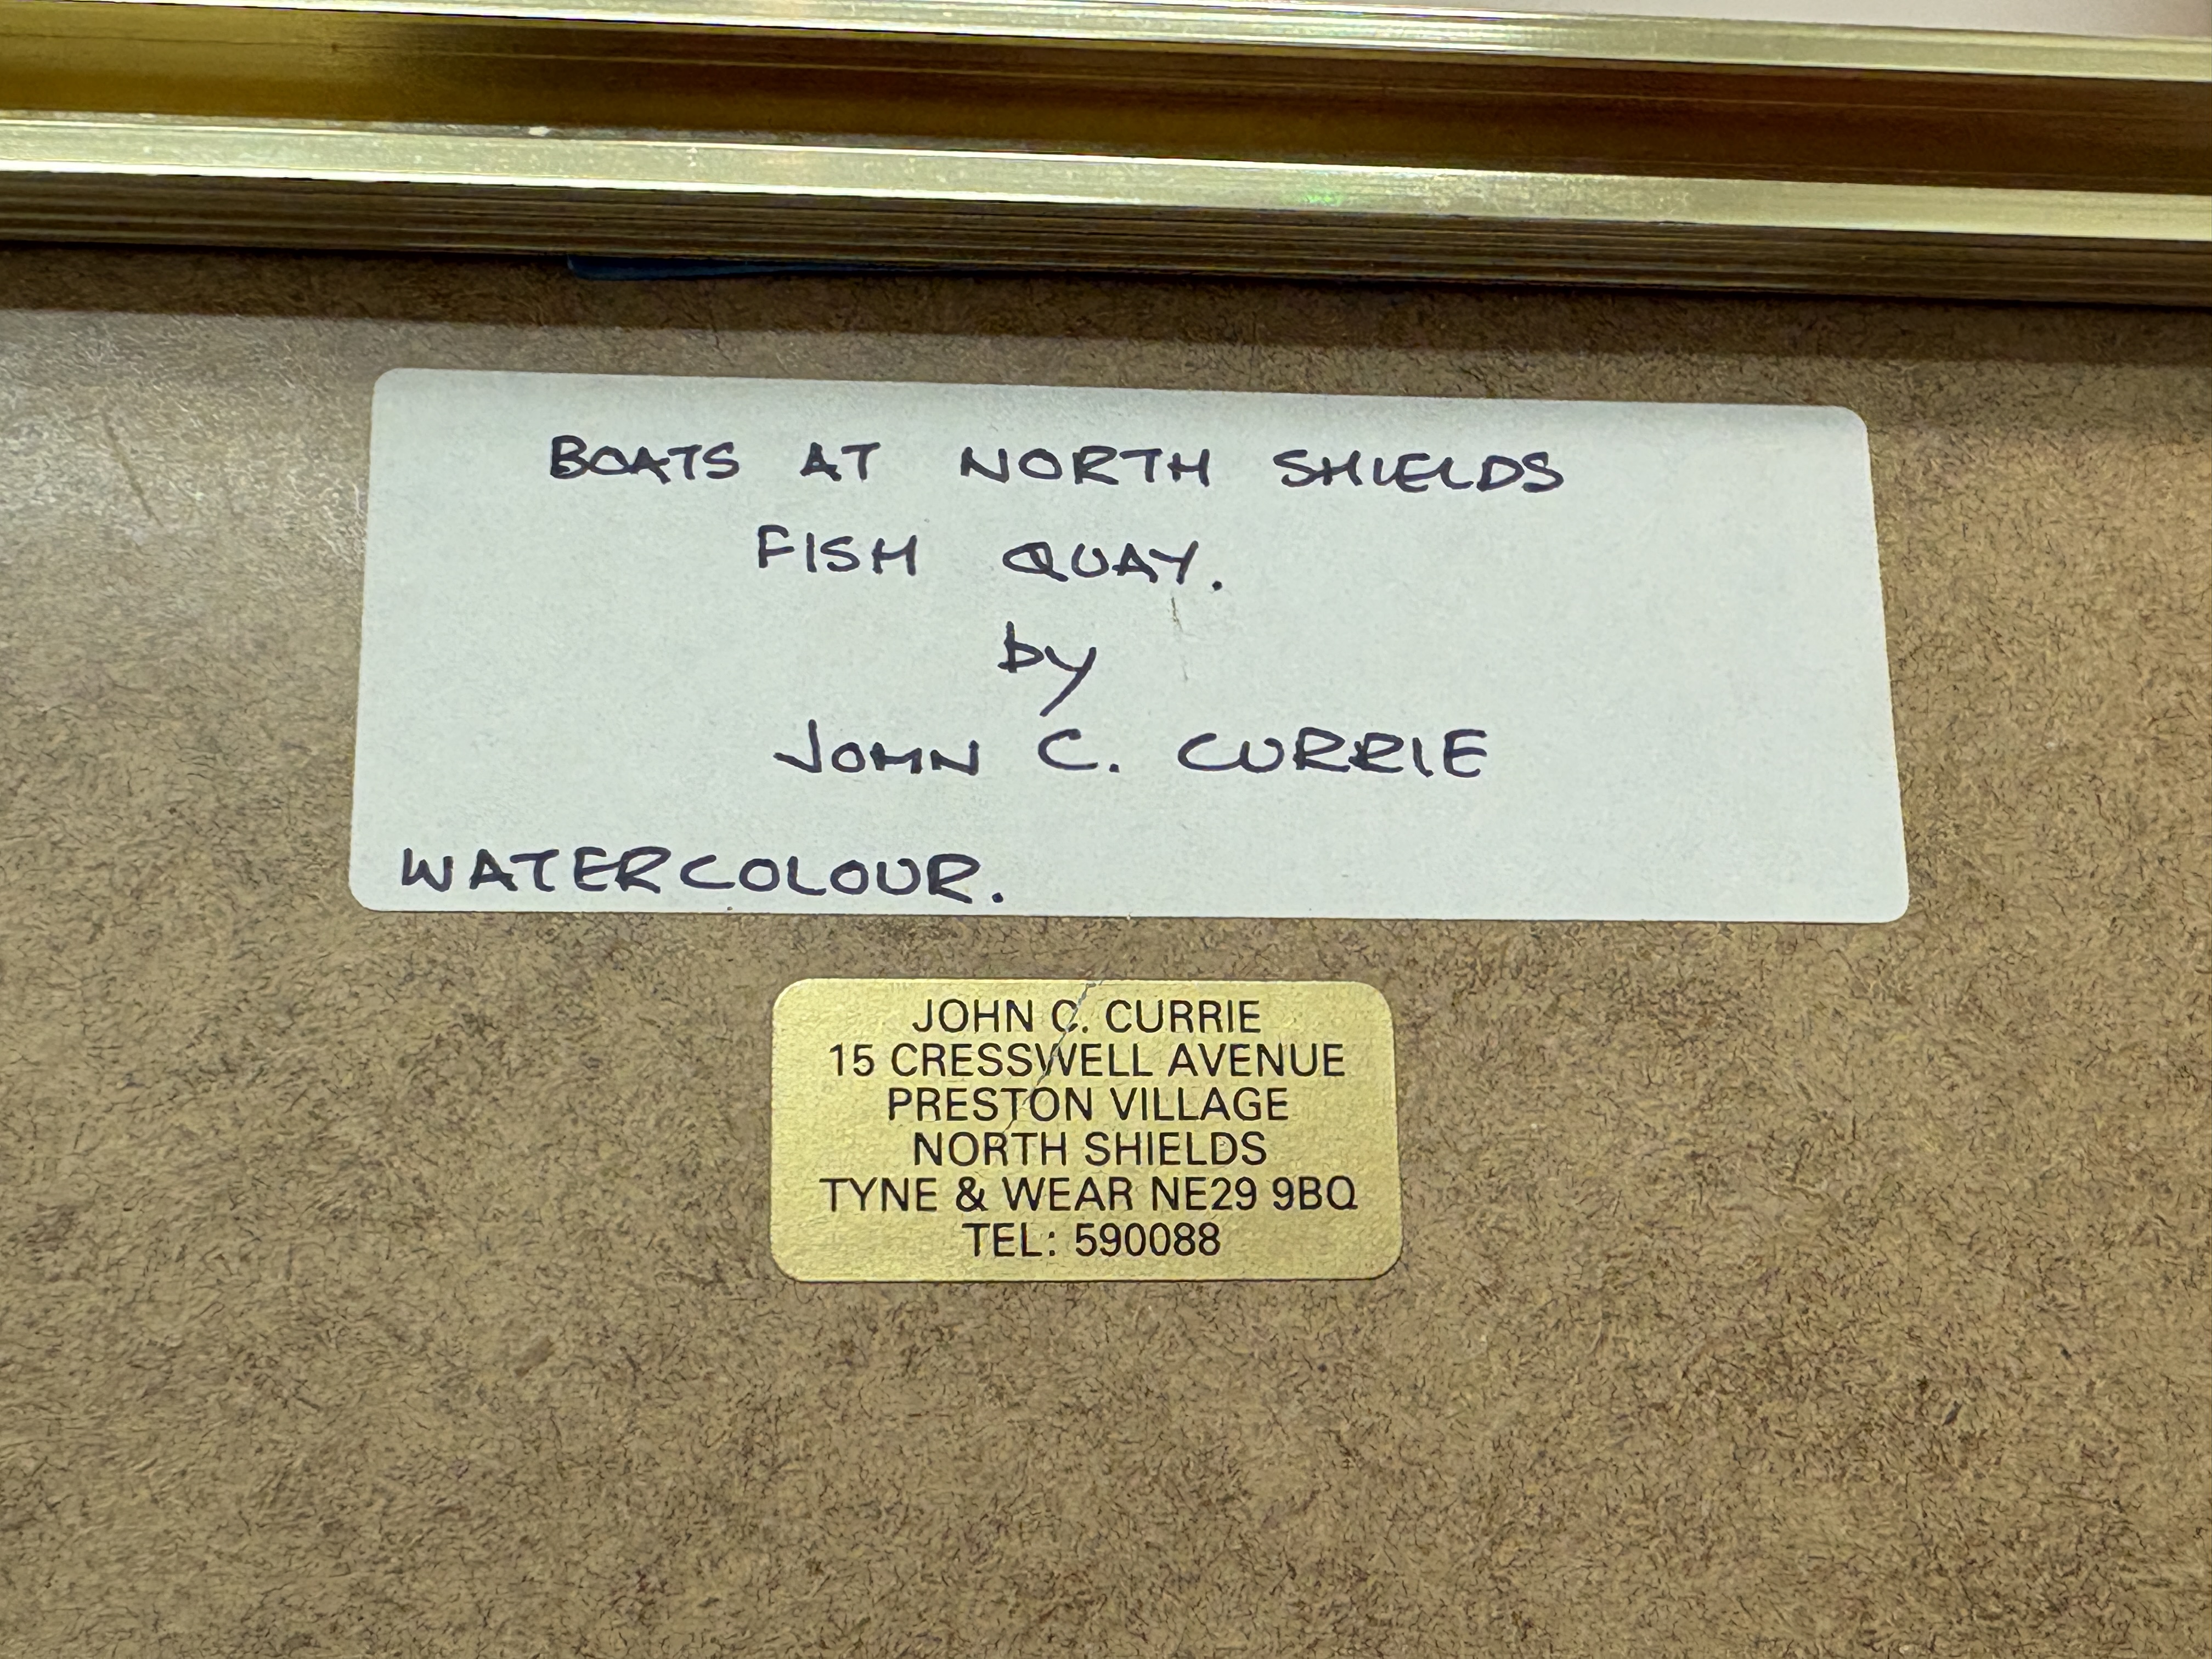 BOATS AT NORTH SHIELDS
FISH QUAY.
by
JOHN C. CURRIE
WATERCOLOUR.
JOHN C. CURRIE
15 CRESSWELL AVENUE
PRESTON VILLAGE
NORTH SHIELDS
TYNE & WEAR NE29 9BQ
TEL: 590088